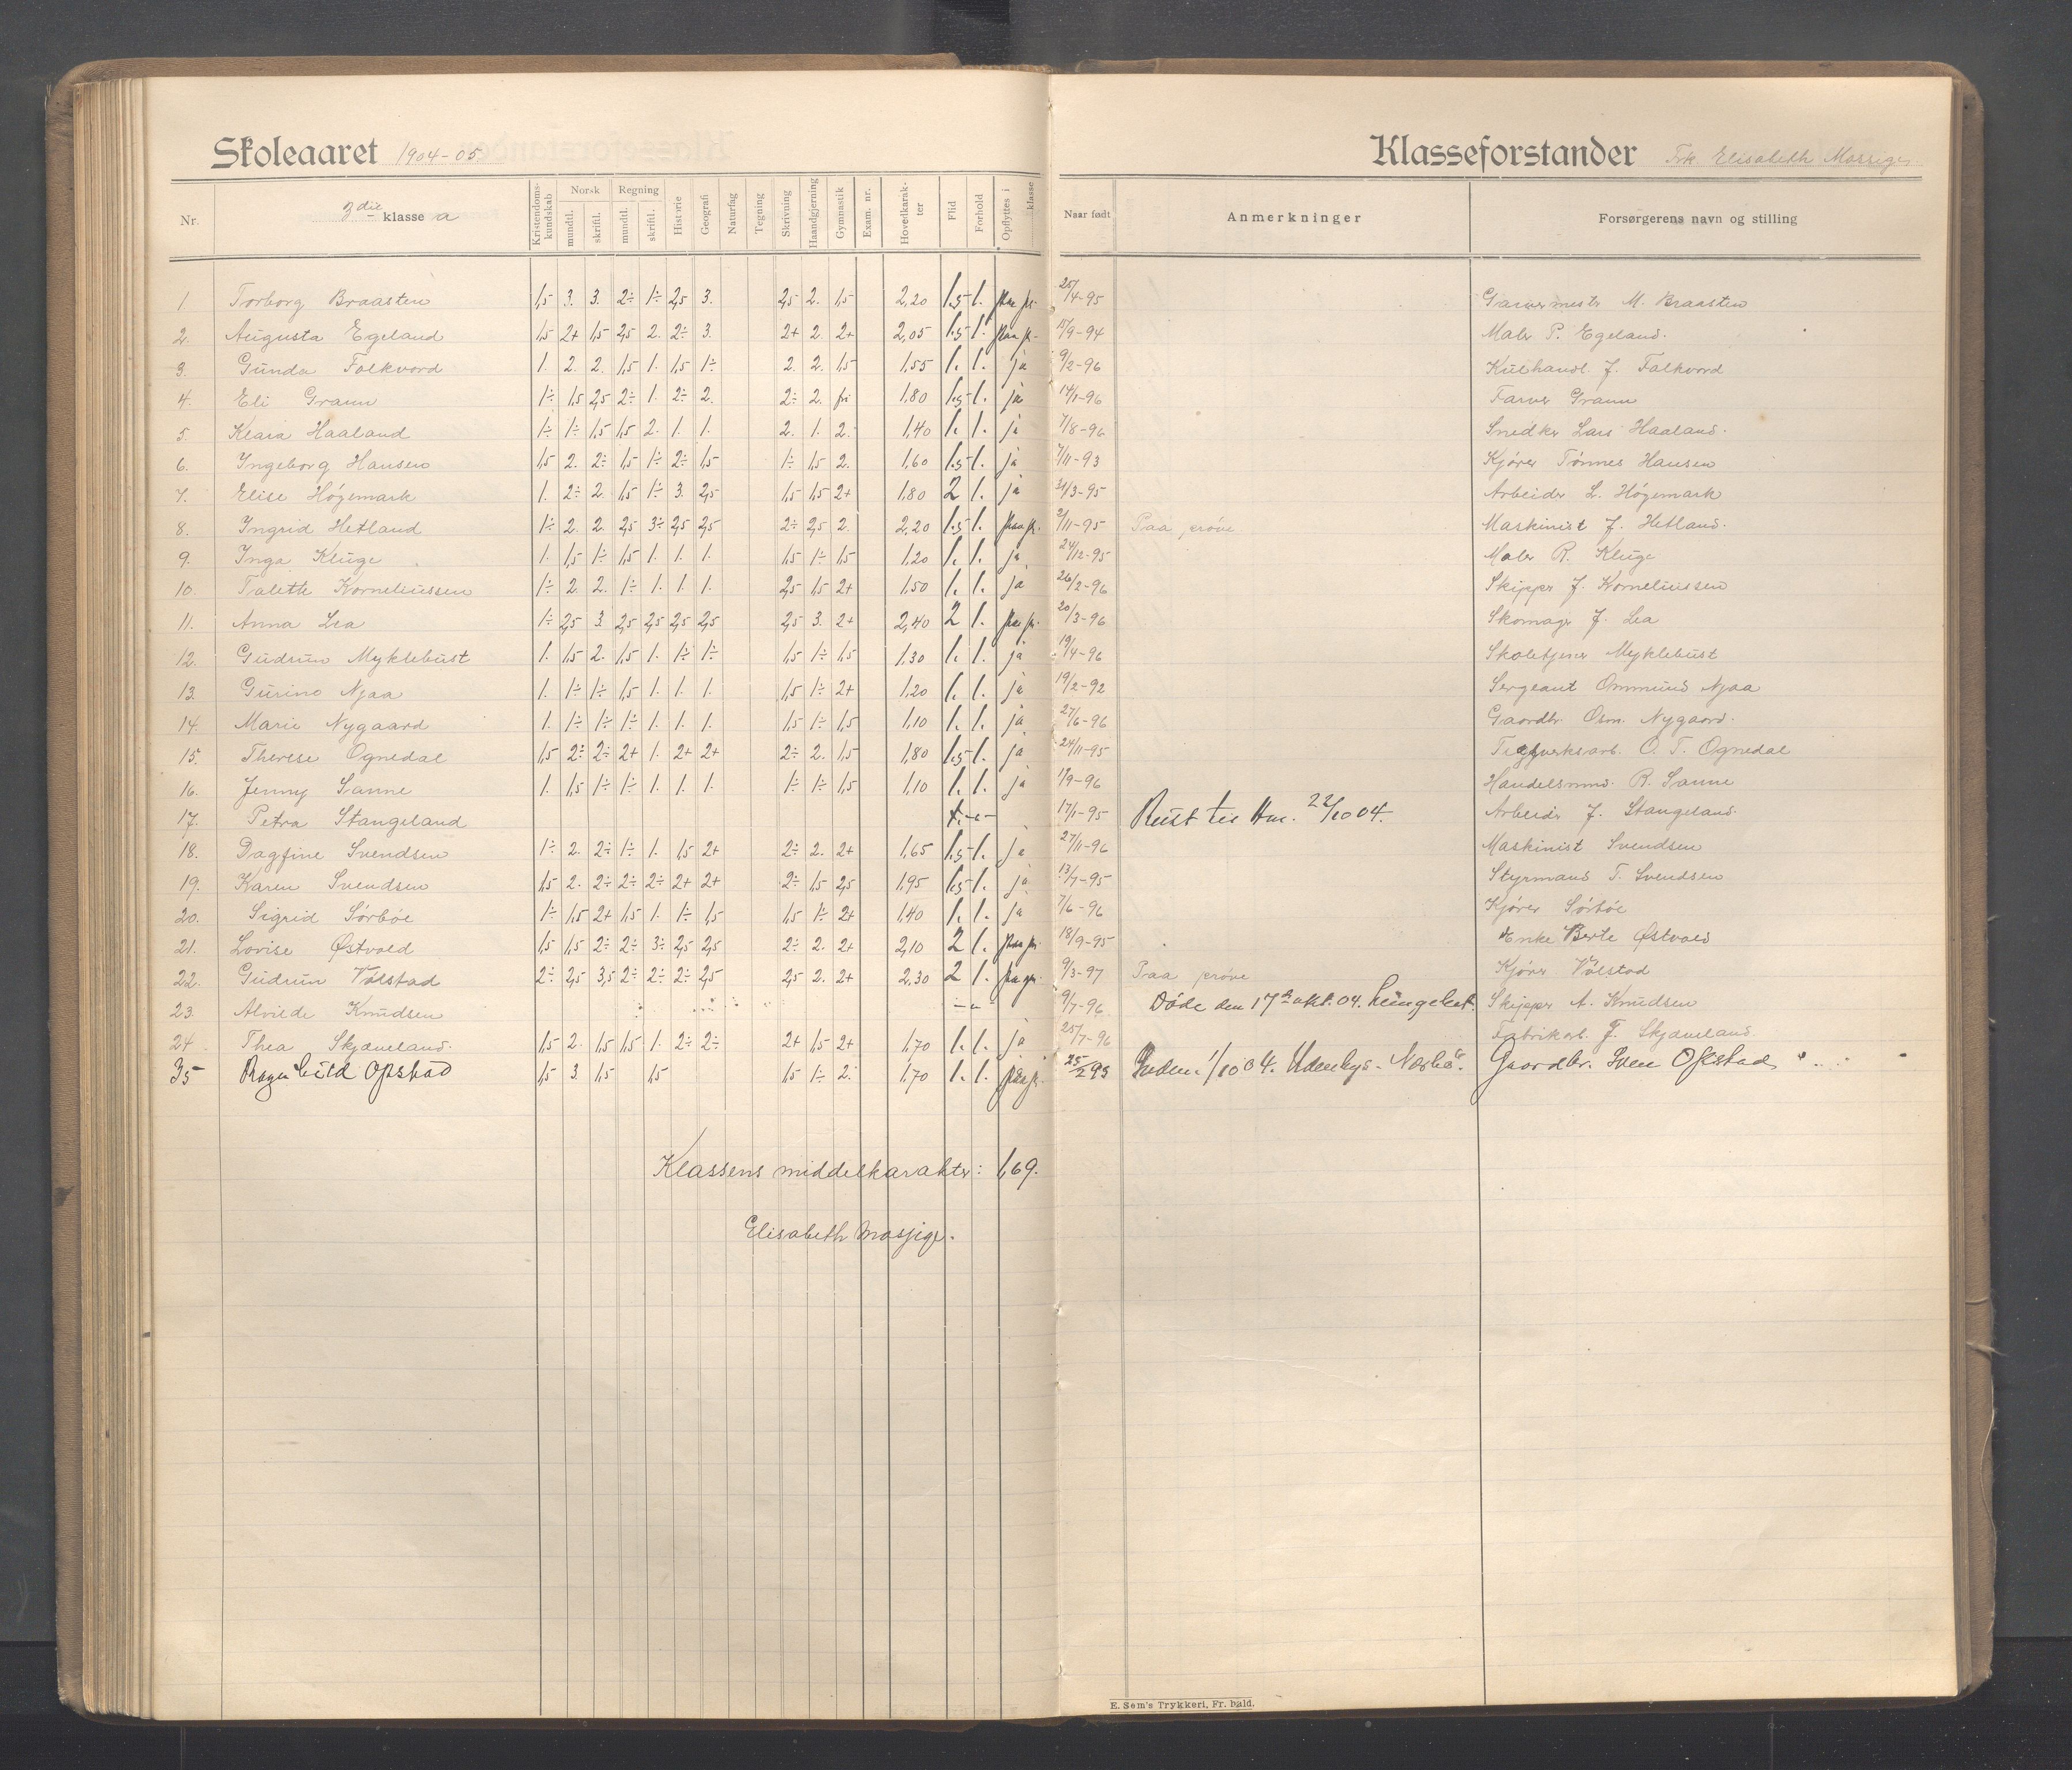 Skoleaaret 1904-05
Klasseforstander Frk. Elisabeth
Nr. 3die klasse a Kristendomskundskab Norsk mundtl. skriftl. Regning mundtl. skriftl. Historie Geografi Naturfag Tegning Skrivning Haandgjerning Gymnastik Exam. nr. Hovedkarakter Flid Forhold Opflyttes i klasse Naar født Anmerkninger Forsørgerens navn og stilling
1. Torborg Braasten 1,5 3. 3. 2÷ 1÷ 2,5 3. 2,5 2. 1,5 2,20 1.5 1. paa pr. 25/4-95 M. Braasten
2. Augusta Egeland 1,5 2+ 1,5 2,5 2. 2÷ 3. 2+ 2. 2+ 2,05 1.5 1. paa pr. 15/9-94 Maler P. Egeland.
3. Gunda Folkvord 1. 2. 2. 1,5 1. 1,5 1÷ 2. 2. 1,5 1,55 1. 1. ja 9/2-96 Kulhandl. J. Folkvord
4. Eli Grann 1÷ 1,5 2,5 2÷ 1. 2÷ 2. 2÷ 2. fri 1,80 1.5 1. ja 14/1-96 Farver Grann
5. Klara Haaland 1÷ 1÷ 1,5 1,5 2. 1. 1. 2. 1. 2. 1,40 1. 1. ja 7/8-96 Snedker Lars Haaland.
6. Ingeborg Hansen 1,5 2. 2÷ 1,5 1÷ 2÷ 1,5 1÷ 1,5 2. 1,60 1.5 1. ja 7/11-93 Kjører Tønnes Hansen
7. Elise Høgemark 1. 2÷ 2. 1,5 1÷ 3. 2,5 1,5 1,5 2+ 1,80 2 1. ja 31/3-95 Arbeider L. Høgemark
8. Ingrid Hetland 1÷ 2. 2. 2,5 3÷ 2,5 2,5 2÷ 2,5 2. 2,20 1.5 1. paa pr. 2/11-95 Paa prøve Maskinist J. Hetland.
9. Inga Kluge 1. 1,5 1÷ 1,5 1. 1. 1. 1,5 1÷ 1,5 1,20 1. 1. ja 24/12-95 Maler R. Kluge
10. Talette Korneliussen 1÷ 2. 2. 1÷ 1. 1. 1. 2,5 1,5 2+ 1,50 1. 1. ja 26/2-96 Skipper J. Korneliussen
11. Anna Lea 1÷ 2,5 3. 2,5 2,5 2,5 2,5 2,5 3. 2+ 2,40 2 1. paa pr. 20/3-96 Skomager J. Lea
12. Gudrun Myklebust 1. 1,5 2. 1,5 1. 1÷ 1÷ 1,5 1÷ 1,5 1,30 1. 1. ja 19/4-96 Skoletjener Myklebust
13. Gurine Njaa 1. 1÷ 1÷ 1,5 1. 1. 1. 1,5 1÷ 2+ 1,20 1. 1. ja 19/2-92 Sergeant Ommund Njaa
14. Marie Nygaard 1. 1÷ 1÷ 1÷ 1. 1. 1. 1,5 1÷ 1,5 1,10 1. 1. ja 27/6-96 Gaardbr. Osm. Nygaard.
15. Therese Ognedal 1,5 2÷ 2÷ 2+ 1. 2+ 2+ 2÷ 2. 1,5 1,80 1.5 1. ja 24/11-95 O. T. Ognedal
16. Jenny Sanne 1. 1,5 1÷ 1÷ 1. 1. 1. 1÷ 1÷ 1,5 1,10 1. 1. ja 1/9-96 Handelsmand. R. Sanne
17. Petra Stangeland 17/1-95 Reist til 22/10 04. Arbeider J. Stangeland.
18. Dagfine Svendsen 1÷ 2. 2÷ 1÷ 1. 1,5 2+ 2÷ 2. 2+ 1,65 1.5 1. ja 27/11-96 Maskinist Svendsen
19. Karen Svendsen 1,5 2. 2÷ 2÷ 2÷ 2+ 2+ 2÷ 1,5 2,5 1,95 1.5 1. ja 13/7-95 Styrmand T. Svendsen
20. Sigrid Sørbøe 1÷ 1,5 2+ 1,5 1. 1÷ 1,5 1,5 1÷ 2+ 1,40 1. 1. ja 7/6-96 Kjører Sørbøe
21. Lovise Østvold 1,5 1,5 2÷ 2÷ 3÷ 2,5 2,5 2÷ 2. 2+ 2,10 2 1. paa pr. 18/9-95 Enke Berte Østvold
22. Gudrun Vølstad 2÷ 2,5 3,5 2÷ 2÷ 2÷ 2,5 2,5 2. 2+ 2,30 2 1. paa pr. 9/3-97 Paa prøve Kjører Vølstad
23. Alvilde Knudsen 9/7-96 Døde den 17de okt. 04. Skipper A. Knudsen
24. Thea Skjæveland. 1,5 2. 1,5 1,5 1. 2÷ 2÷ 2+ 1,5 2+ 1,70 1. 1. ja 25/7-96 Fabrikarb. J. Skjæveland
35 Ragnhild Opstad 1,5 3. 1,5 1,5 1,5 1÷ 2. 1,70 1. 1. paa pr. 25/2 93 1/10 04. Udenbys - Nærbø. Gaardbr. Sven Opstad
Klassens middelkarakter: 1,69.
Elisabeth
E. Sem's Trykkeri, Fr. hald.